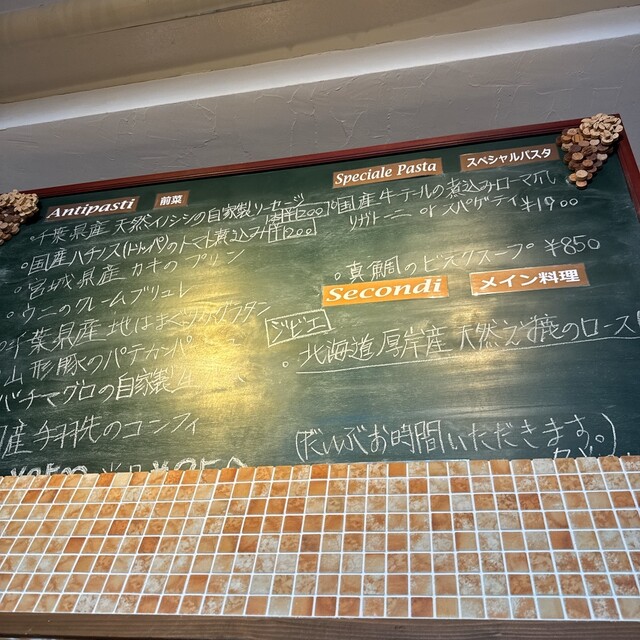 Antipasti 前菜
。千葉県産 天然イノシシの自家製ソーセージ ¥1200
。国産ハチノス(トリッパ)のトマト煮込み ¥1200
。宮城県産 カキの プリン
。ウニのクレームブリュレ
千葉県産 地はまぐり
山形豚のパテカンパ
バチマグロの自家製
産 手羽先のコンフィ
Speciale Pasta スペシャルパスタ
。国産牛テールの煮込みローマ
リガトーニ or スパゲティ ¥1900
。真鯛のビスクスープ。 ¥850
Secondi メイン料理
ジビエ
。北海道厚岸産 天然えぞ鹿のロース
(だいぶお時間いただきます。)